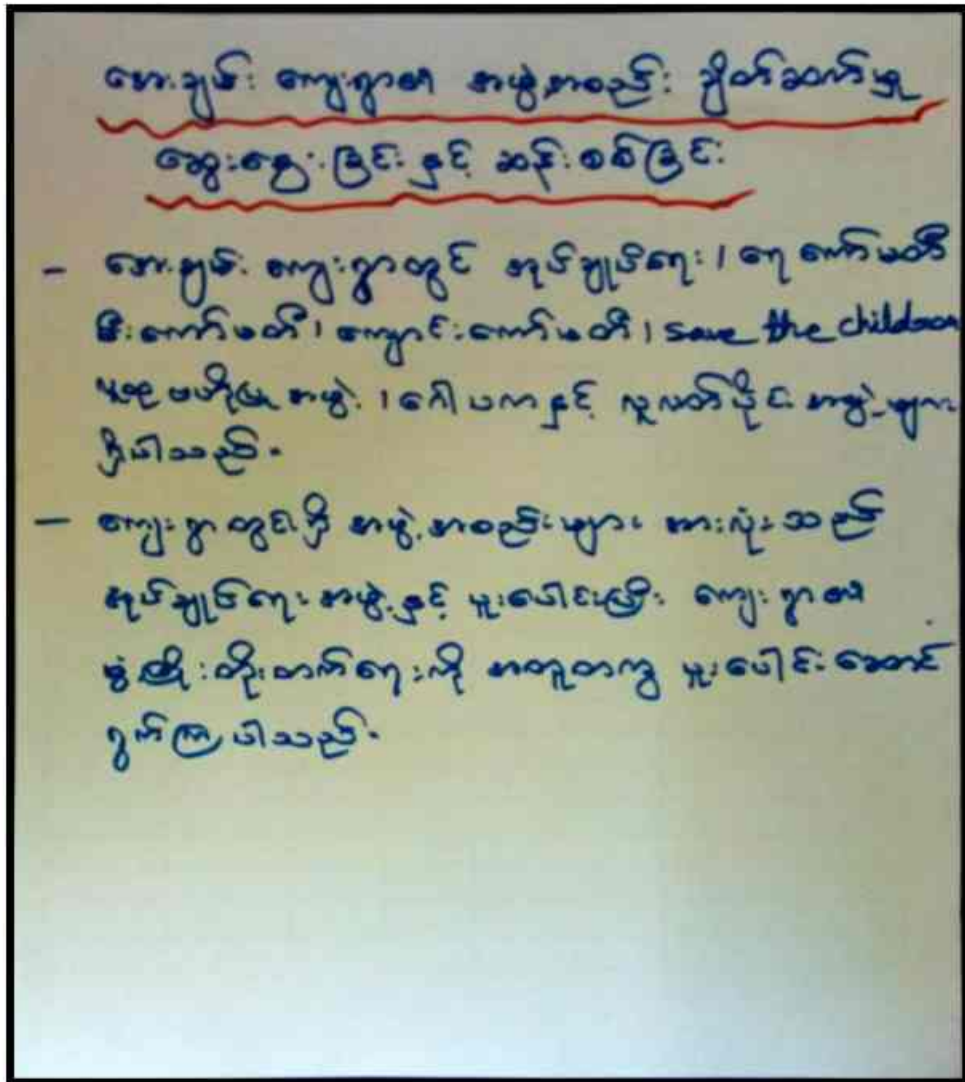 အေးချမ်း ကျေးရွာ၏ အဖွဲ့အစည်း ချိတ်ဆက်မှု
ဆွေးနွေးခြင်း နှင့် ဆန်းစစ်ခြင်း
- အေးချမ်း ကျေးရွာတွင် အုပ်ချုပ်ရေး ၊ ရေ ကော်မတီ
မီးကော်မတီ ၊ ကျောင်းကော်မတီ ၊ save the children
အဖွဲ့ ၊ ဂေါပကနှင့် လူလတ်ပိုင်း အဖွဲ့များ
ရှိပါသည်။
- ကျေးရွာတွင်ရှိ အဖွဲ့အစည်းများ အားလုံးသည်
အုပ်ချုပ်ရေး အဖွဲ့နှင့် ပူးပေါင်းပြီး ကျေးရွာ၏
ဖွံ့ဖြိုးတိုးတက်ရေးကို အတူတကွ ပူးပေါင်းဆောင်
ရွက်ကြပါသည်။